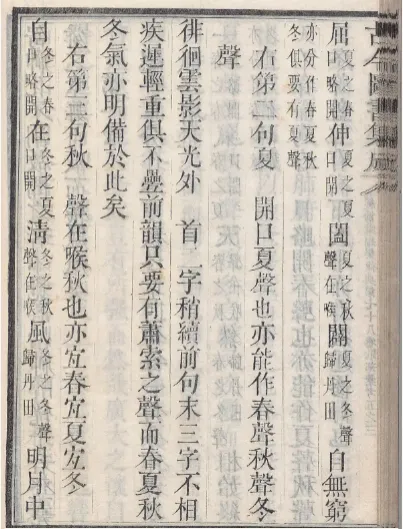 古今圖書集成
屈夏之春口略開伸夏之夏口開闔夏之秋聲在喉闢夏之冬聲歸丹田自無窮
亦分作春夏秋
冬俱要有夏聲
右第二句夏　開口夏聲也亦能作春聲秋聲冬
聲
徘徊雲影天光外　首二字稍續前句末三字不相
疾遲輕重俱不疊前韻只要有蕭索之聲而春夏秋
冬氣亦明備於此矣
右第三句秋　聲在喉秋也亦宜春宜夏宜冬
自冬之春口略開在冬之夏口開淸冬之秋聲在喉風冬之冬聲歸丹田明月中